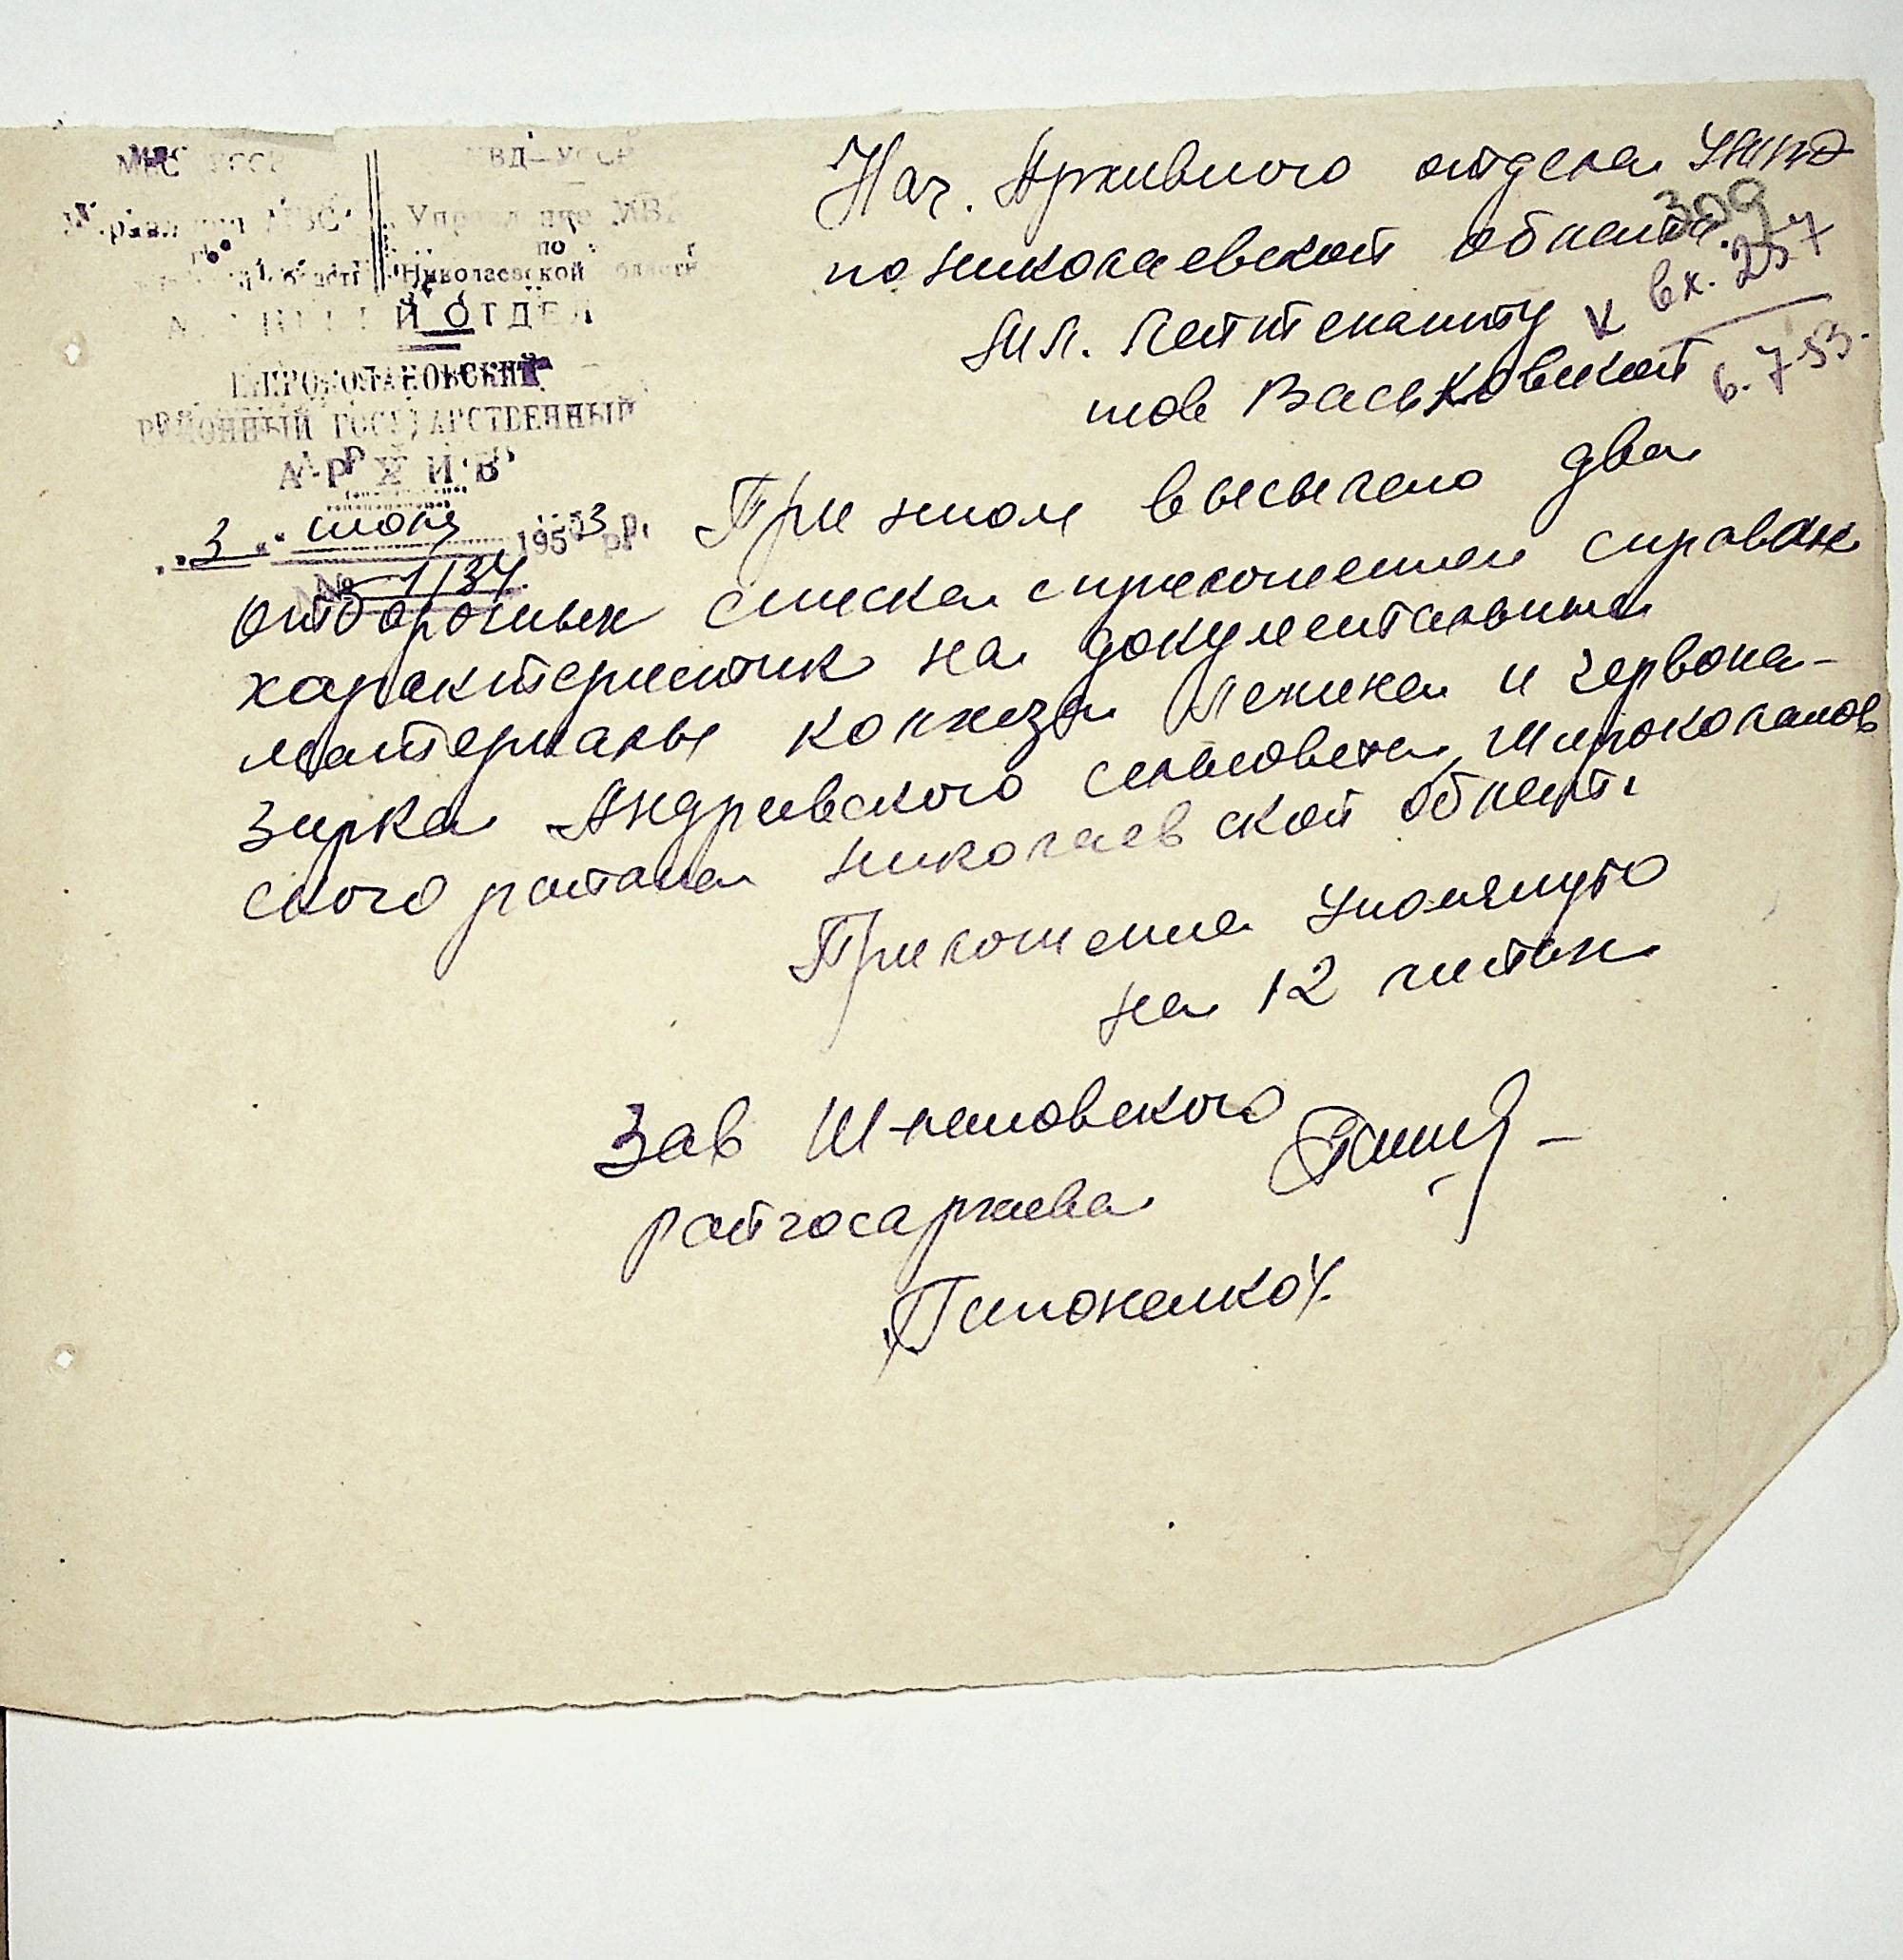 МВС УССР
МВД—УССР
Управление МВД
по
Николаевской области
ОТДЕЛ
ШИРОКОЛАНОВСКИЙ
РАЙОННЫЙ ГОСУДАРСТВЕННЫЙ
АРХИВ
"3" июля 1953 р.
№ 1/34
Нач. Архивного отдела УМВД
309
по николаевской област.
вх. 257
Мл. Лейттенанту
6.7-53.
тов Васьковской
При этом высылаю два
отборочных списка с приложением справок
характеристик на документальные
материалы колхоза Ленина и Червона-
зирка Андриевского сельсовета, Широколанов
ского района николаевской област.
Приложение Упомянуто
на 12 листах
Зав Ш-лановского
райгосархива